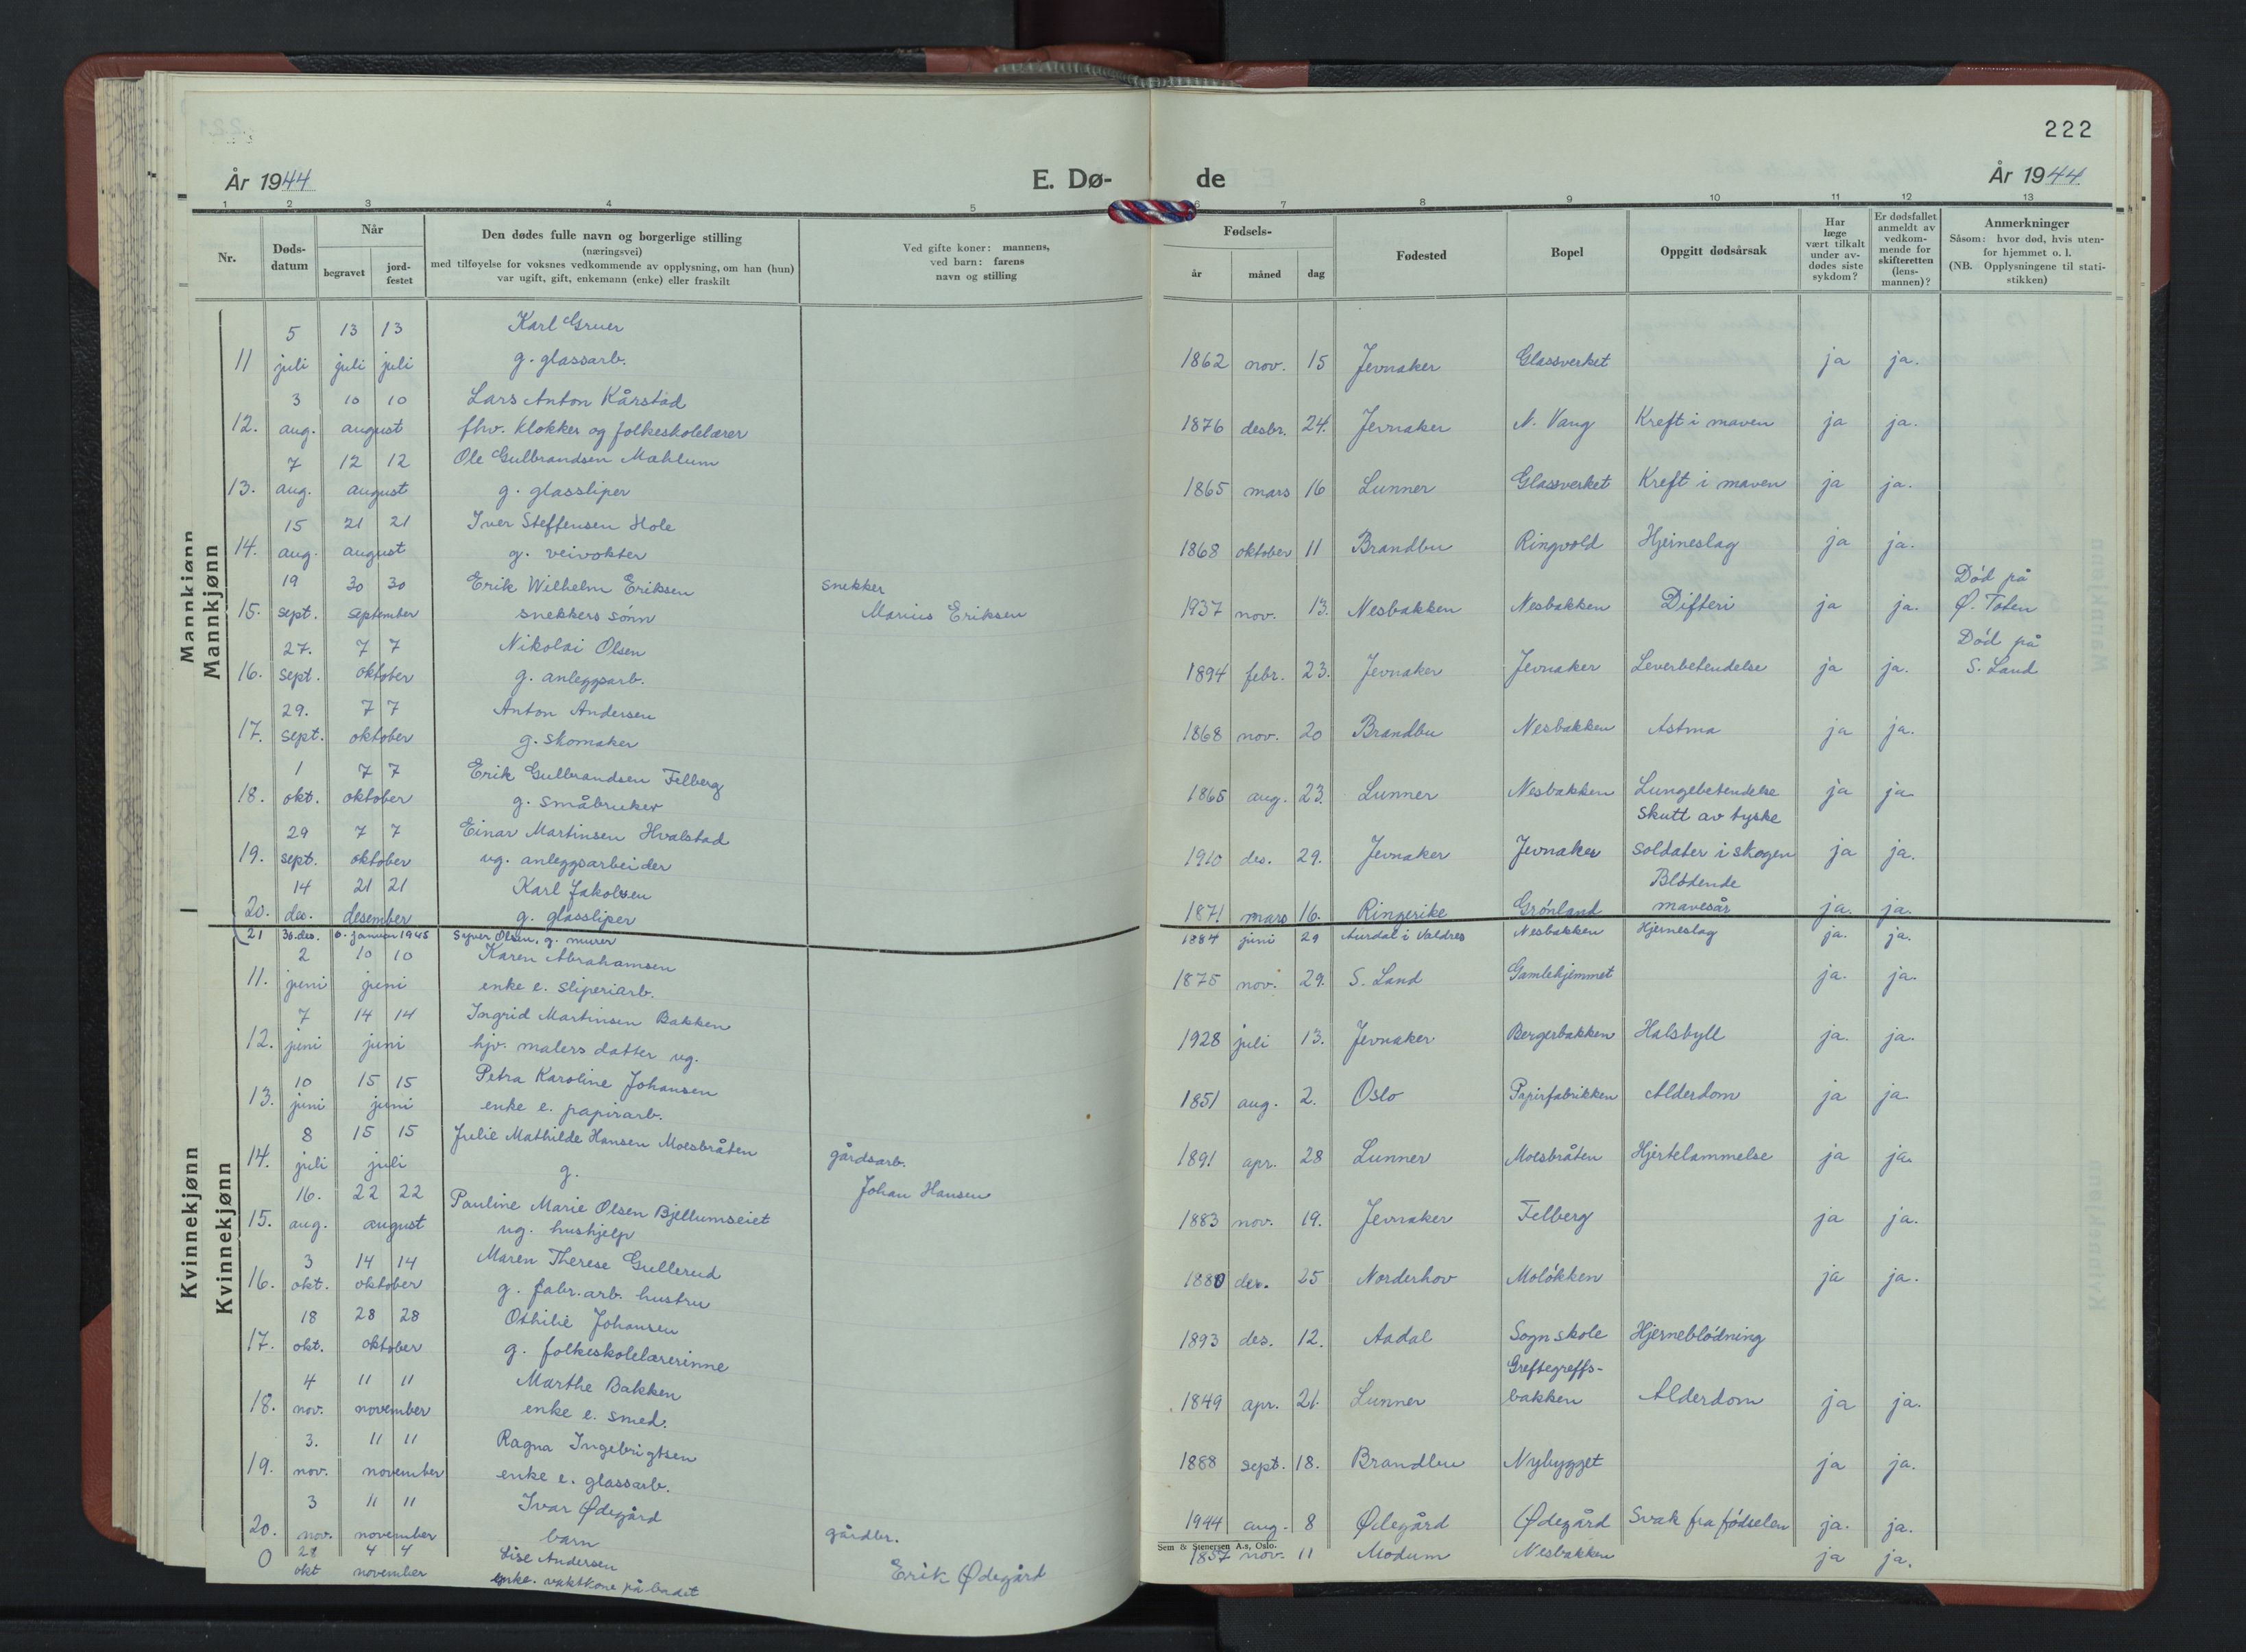 222
År 1944
E. Dø-
de
År 1944
1 2 3 4 5 6 7 8 9 10 11 12 13
Nr.
Døds-
datum
Når
begravet
jord-
festet
Den dødes fulle navn og borgerlige stilling
(næringsvei)
med tilføyelse for voksnes vedkommende av opplysning, om han (hun)
var ugift, gift, enkemann (enke) eller fraskilt
Ved gifte koner: mannens,
ved barn: farens
navn og stilling
Fødsels-
år
måned
dag
Fødested
Bopel
Oppgitt dødsårsak
Har
læge
vært tilkalt
under av-
dødes siste
sykdom?
Er dødsfallet
anmeldt av
vedkom-
mende for
skifteretten
(lens-
mannen)?
Anmerkninger
Såsom: hvor død, hvis uten-
for hjemmet o. l.
(NB. Opplysningene til stati-
stikken)
Mannkjønn
Mannkjønn
5 13 13 Karl Gruer
11 juli juli juli g. glassarb. 1862 nov. 15 Jevnaker Glassverket ja ja.
3 10 10 Lars Anton Kårstad
12. aug. august fhv. klokker og folkeskolelærer 1876 desbr. 24. Jevnaker N. Vang Kreft i maven ja ja.
7 12 12 Ole Gulbrandsen Mæhlum
13. aug. august g. glassliper 1865 mars 16 Lunner Glassverket Kreft i maven ja ja.
15 21 21 Iver Steffensen Hole
14. aug. august g. veivokter 1868 oktober 11 Brandbu Ringvold Hjerneslag ja ja.
19 30 30 Erik Wilhelm Eriksen snekker Død på
15. sept. september snekkers sønn Marius Eriksen 1937 nov. 13. Nesbakken Nesbakken Difteri ja ja. Ø. Toten
27. 7 7 Nikolai Olsen Død på
16. sept. oktober g. anleggsarb. 1894 febr. 23. Jevnaker Jevnaker Leverbetendelse ja ja. S. Land
29. 7 7 Anton Andersen
17. sept. oktober g. skomaker 1868 nov. 20 Brandbu Nesbakken Astma ja ja.
1 7 7 Erik Gulbrandsen Felberg
18. okt. oktober g. småbruker 1865 aug. 23. Lunner Nesbakken Lungebetendelse ja ja
29 7 7 Einar Martinsen Hvalstad Skutt av tyske
19. sept. oktober ug. anleggsarbeider 1910 des. 29. Jevnaker Jevnaker soldater i skogen ja ja.
14 21 21 Karl Jakobsen Blødende
20. des. desember g. glassliper 1871 mars 16. Ringerike Grønland mavesår ja. ja.
21 30. des. 6. januar 1945 Syver Olsen, g. murer 1884 juni 29 Aurdal i Valdres Nesbakken Hjerneslag ja. ja.
Kvinnekjønn
Kvinnekjønn
2 10 10 Karen Abrahamsen
11. juni juni enke e. sliperiarb. 1875 nov. 29. S. Land Gamlehjemmet ja. ja.
7 14 14 Ingrid Martinsen Bakken
12. juni juni hjv. malers datter ug. 1928 juli 13. Jevnaker Bergerbakken Halsbyll ja. ja.
10 15 15 Petra Karoline Johansen
13. juni juni enke e. papirarb. 1851 aug. 2. Oslo Papirfabrikken Alderdom ja ja.
8 15 15 Julie Mathilde Hansen Moesbråten gårdsarb.
14. juli juli g. Johan Hansen 1891 apr. 28 Lunner Moesbråten Hjertelammelse ja ja.
16. 22 22 Pauline Marie Olsen Bjellumseiet
15. aug. august ug. hushjelp 1883 nov. 19. Jevnaker Felberg ja ja.
3 14 14 Maren Therese Gullerud
16. okt. oktober g. fabr. arb. hustru 1880 des. 25 Norderhov Moløkken ja ja.
18 28 28 Othilie Johansen
17. okt. oktober g. folkeskolelærerinne 1893 des. 12. Aadal Sogn skole Hjerneblødning
4 11 11 Marthe Bakken Greftegreffs-
18. nov. november enke e. smed. 1849 apr. 21. Lunner bakken Alderdom ja ja.
3. 11 11 Ragna Ingebrigtsen
19. nov. november enke e. glassarb. 1888 sept. 18. Brandbu Nybygget ja ja.
3 11 11 Ivar Ødegård
20. nov. november barn gårdbr. 1944 aug. 8 Ødegård Ødegård Svak fra fødselen ja. ja.
Erik Ødegård
Sem & Stenersen A.s, Oslo.
0 28 4 4 Lise Andersen
okt november enke. vaktkone på badet 1857 nov. 11 Modum Nesbakken ja ja.